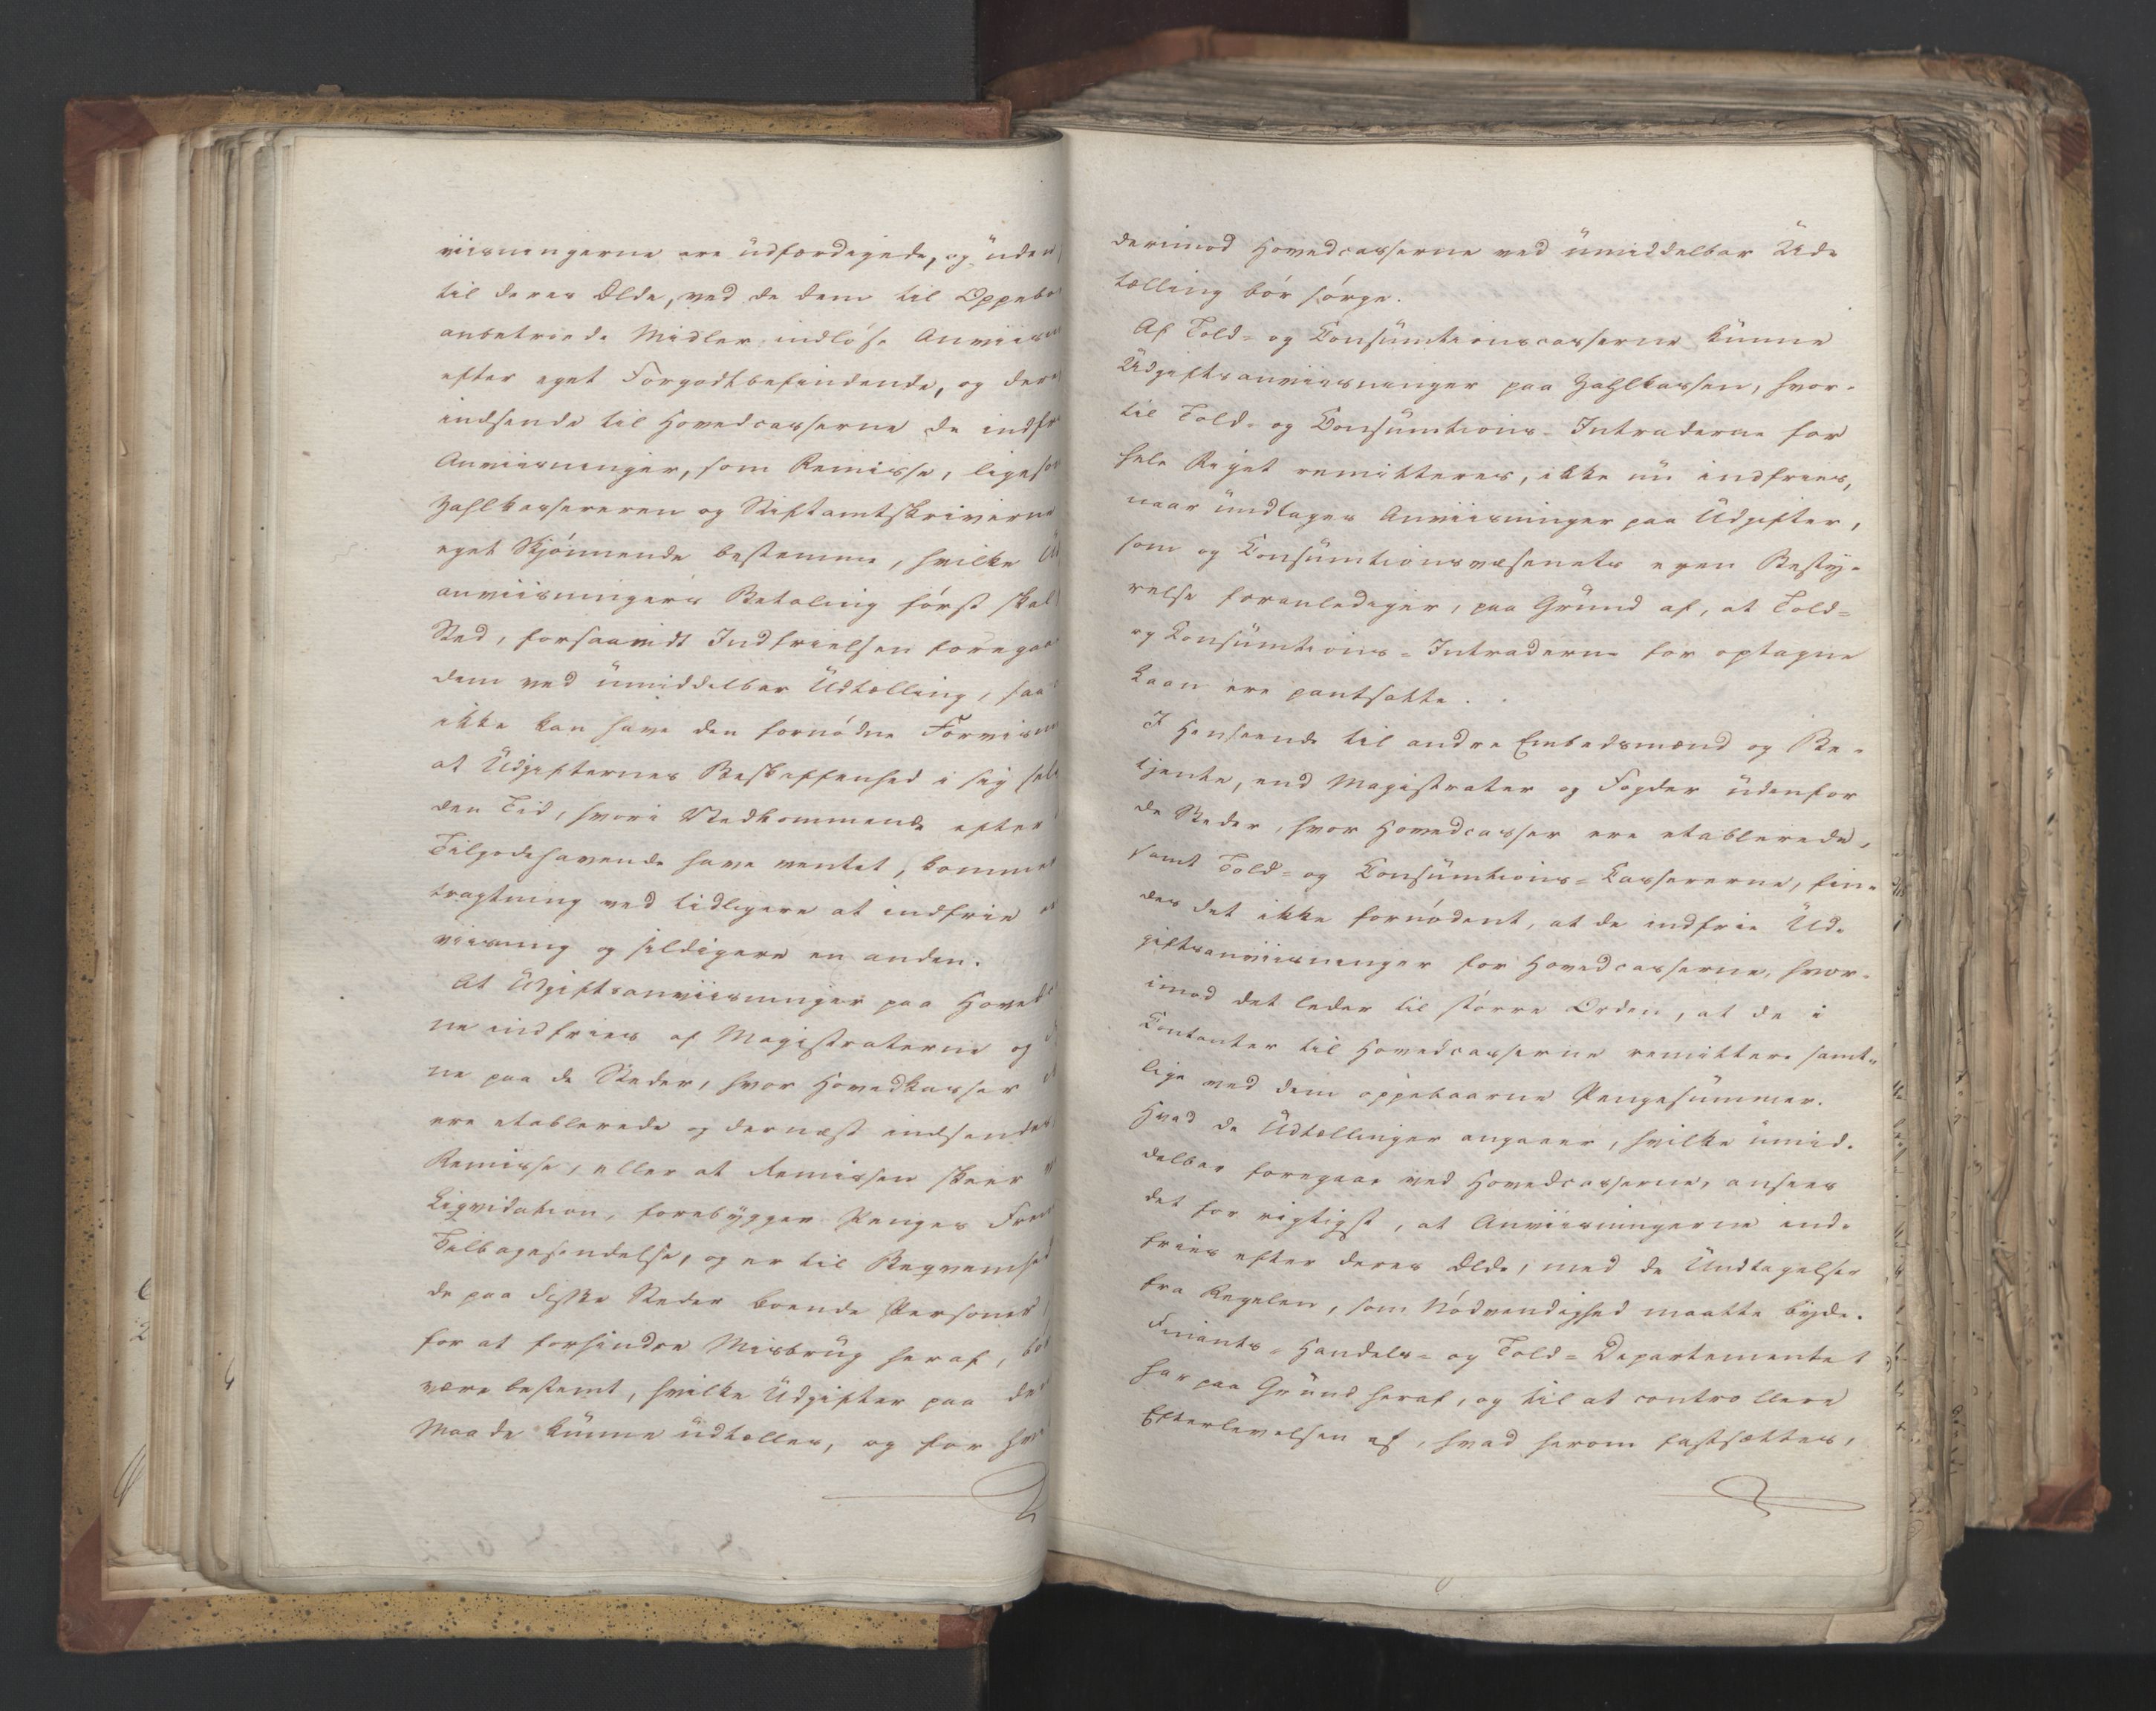 viisningerne ere udfærdigede, og uden
til deres Ælde, ved de dem til Oppebø
anbetroede Midler indløse Anviisn
efter eget Forgodtbefindende, og der
indsende til Hovedcasserne de indfr
Anviisninger, som Remisse, ligeso
Zahlkassereren og Stiftamtskriverne
eget Skjønnende bestemme, hvilke Ud
anviisningers Betaling først skal
Sted, forsaavidt Indfrielsen foregaa
dem ved umiddelbar Udtælling, saa
ikke kan have den fornødne Forvisn
at Udgifternes Beskaffenhed i sig sel
den Tid, hvori Vedkommende efter
Tilgodehavende have ventet, komme
tragtning ved tidligere at indfrie
viisning og sildigere en anden.
At Udgiftsanviisninger paa Hovedc
ne indfries af Magistraterne og
ne paa de Steder, hvor Hovedkasser
ere etablerede og dernæst indsendes
Remisse, eller at Remissen skeer
Liqvidation, forebygger Penges Frem
Tilbagesendelse, og er til Beqvemhed
de paa disse Steder boende Personer,
for at forhindre Misbrug heraf, bør
være bestemt, hvilke Udgifter paa de
Maade kunne udtælles, og for hvi
derimod Hovedcasserne ved umiddelbar Ud-
tælling bør sørge.
Af Told- og Consumtionscasserne kunne
Udgiftsanviisninger paa Zahlkassen, hvor-
til Told- og Consumtions-Intraderne for
hele Riget remitteres, ikke nu indfries,
naar undtages Anviisninger paa Udgifter,
som og Consumtionsvæsenets egen Besty-
relse foranlediger, paa Grund af, at Told-
og Consumtions-Intraderne for optagne
Laan ere pantsatte.
I Henseende til andre Embedsmænd og Be-
tjente, end Magistrater og Fogder udenfor
de Steder, hvor Hovedcasser ere etablerede,
samt Told- og Consumtions-Cassererne, fin-
des det ikke fornødent, at de indfrie Ud-
giftsanviisninger for Hovedcasserne, hvor-
imod det leder til større Orden, at de i
Contanter til Hovedcasserne remittere samt-
lige ved dem oppebaarne Pengesummer.
Hvad de Udtællinger angaaer, hvilke umid-
delbar foregaae ved Hovedcasserne, ansees
det for rigtigst, at Anviisningerne ind-
fries efter deres Ælde, med de Undtagelser
fra Regelen, som Nødvendighed maatte byde.
Finants- Handels- og Told-Departementet
har paa Grund heraf, og til at controllere
Efterlevelsen af, hvad herom fastsættes,